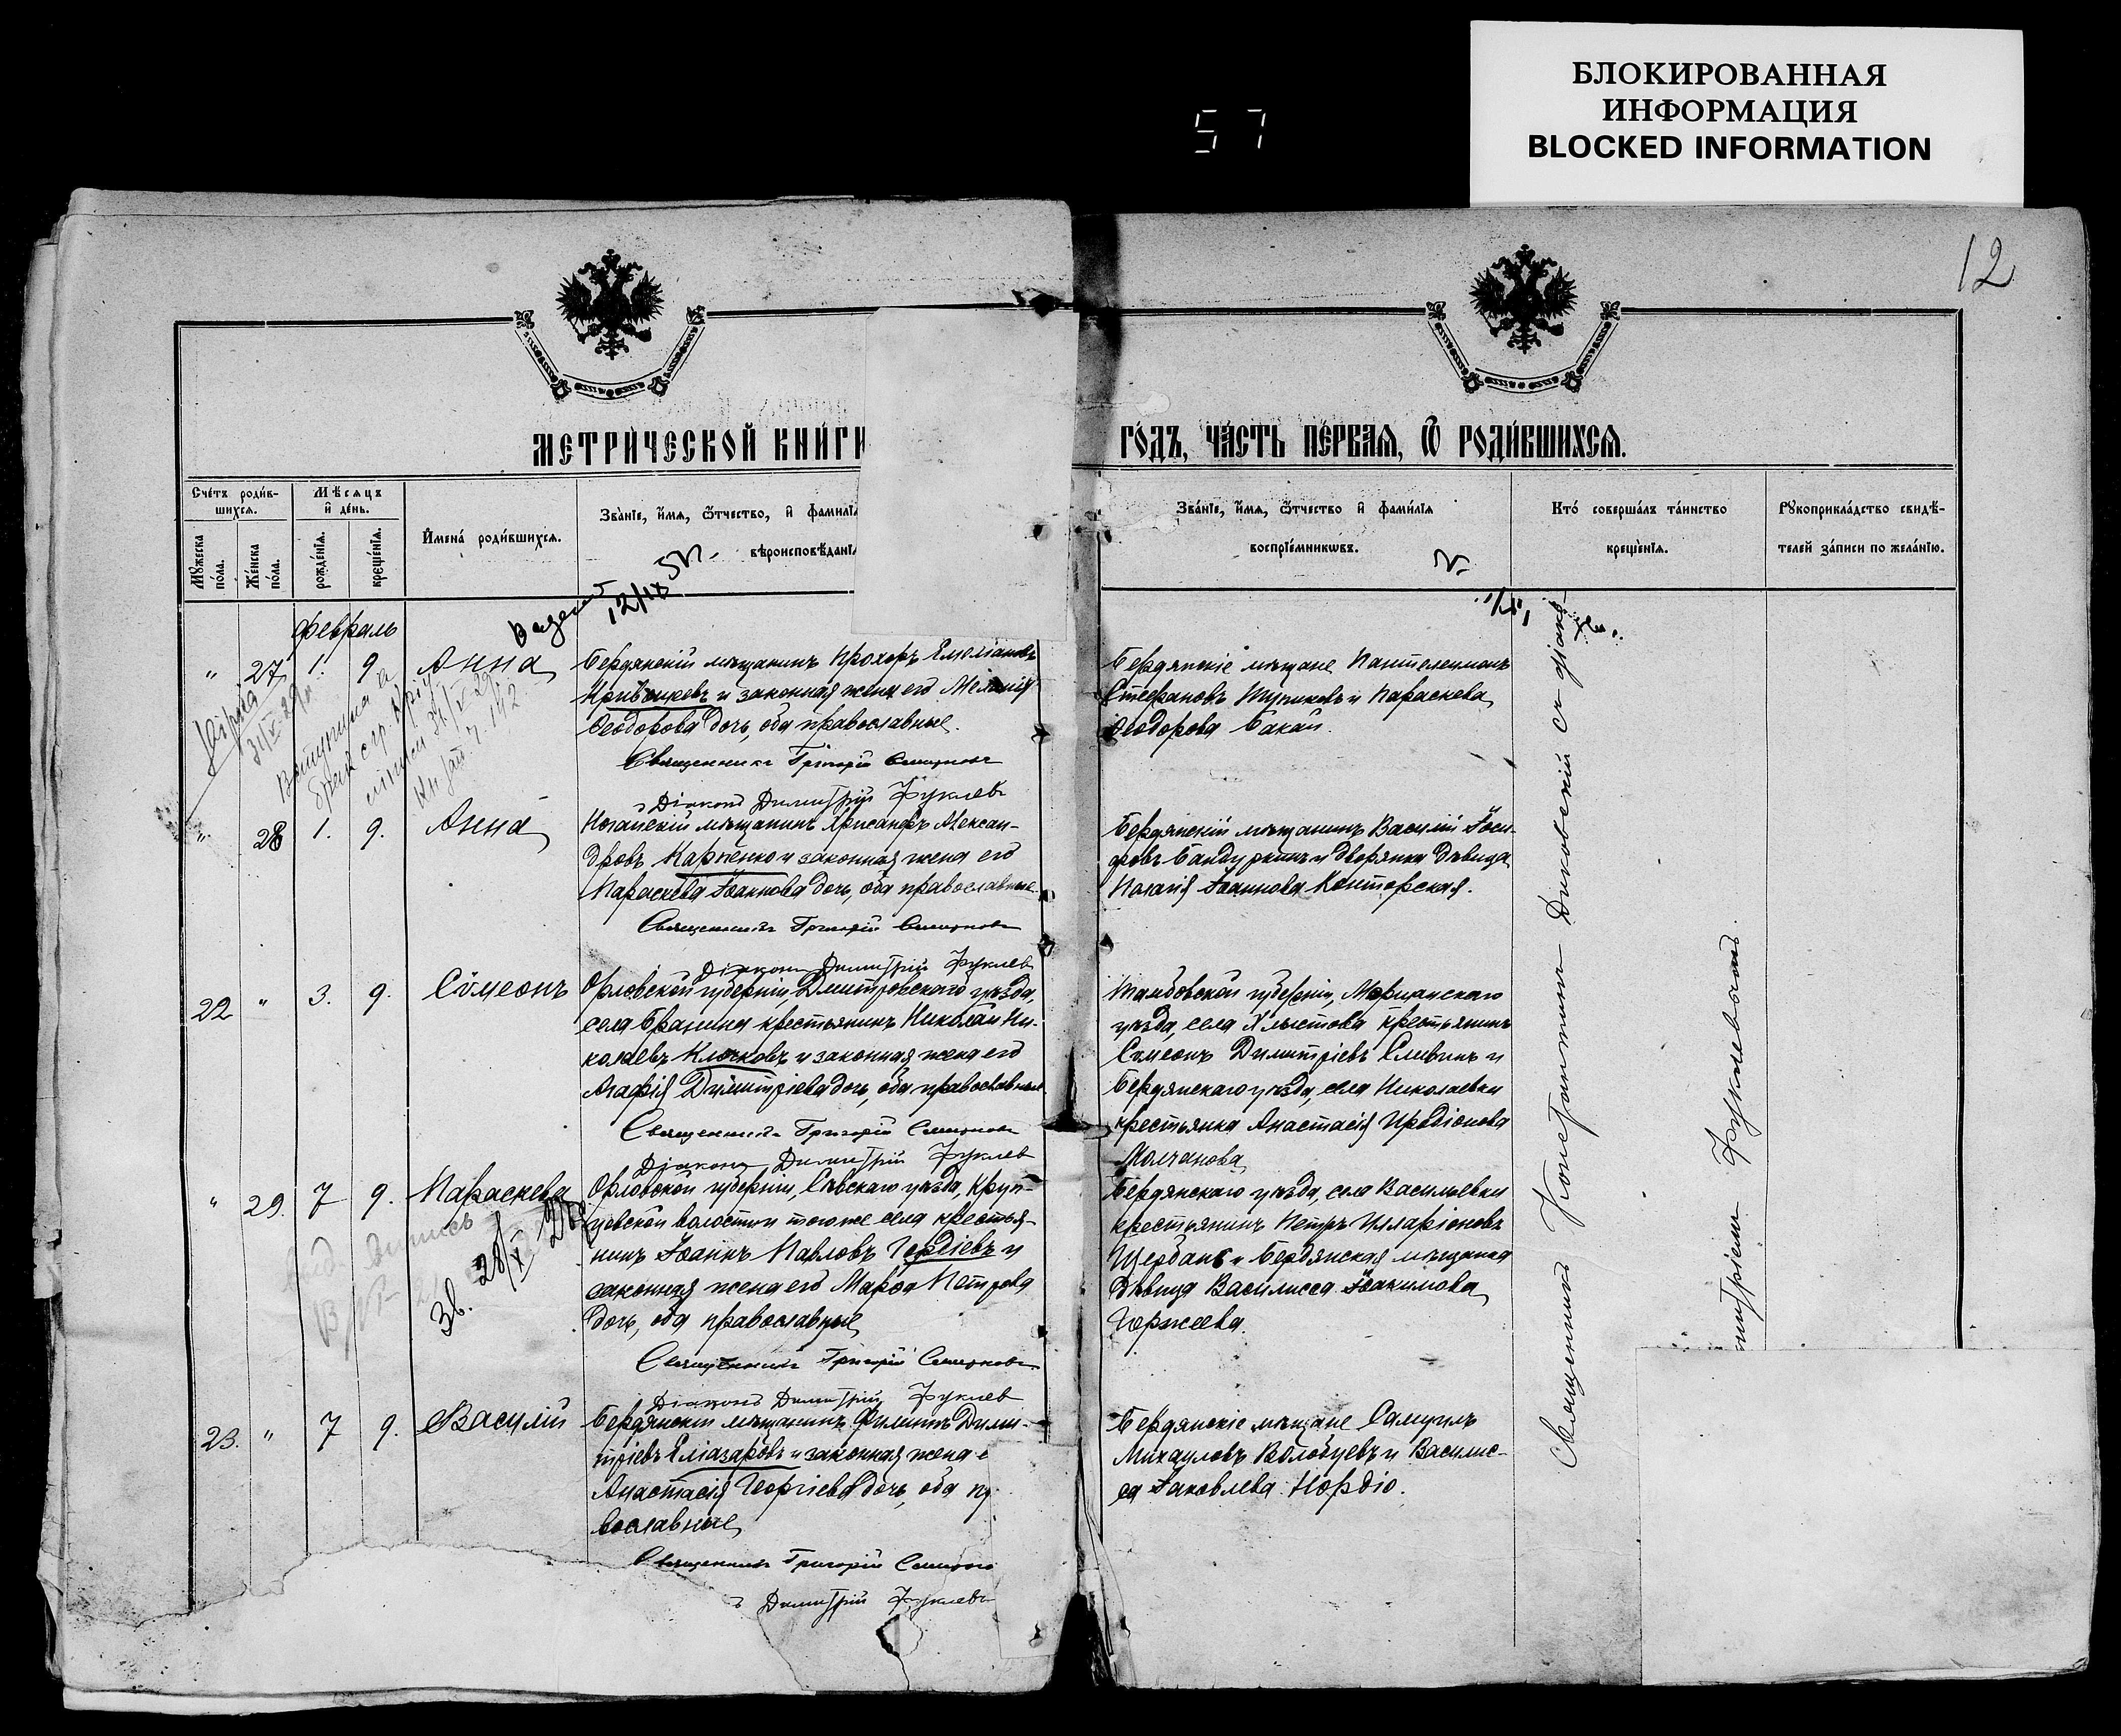 БЛОКИРОВАННАЯ
ИНФОРМАЦИЯ
BLOCKED INFORMATION
57
12
МЕТРИЧЕСКОЙ КНИГИ
ГОДЪ, ЧАСТЬ ПЕРВАЯ, Ѿ РОДИВШИХСЯ.
Счетъ родив-
шихся.
Мѣсяцъ
и день.
Мужеска
пола.
Женска
пола.
рожденія.
крещенія.
Имена родившихся.
Званіе, имя, ѿчество, и фамилія
вѣроисповѣданія
Званіе, имя, ѿчество и фамилія
воспріемниковъ.
Кто совершалъ таинство
крещенія.
Рукоприкладство свидѣ-
телей записи по желанію.
12/IX
февраль
" 27. 1. 9. Анна
Бердянскій мѣщанинъ Прохоръ Емеліановъ
и законная жена его Меланія
Ѳеодорова дочь, оба православные.
Священникъ Григорій
Діаконъ Димитрій Фуклев
Бердянскіе мѣщане Пантелеимонъ
Стефановъ и Параскева
Ѳеодорова Бакай.
" 28 1. 9. Анна
Ногайскій мѣщанинъ Хрисанфъ Алексан-
дровъ Карпенко и законная жена его
Параскева Іоаннова дочь, оба православные.
Священникъ Григорій
Діаконъ Димитрій Фуклев
Бердянскій мѣщанинъ Василій Іоси-
фовъ Бандуркинъ и дворянка дѣвица
Пелагія Іоаннова Конторская.
22 " 3. 9. Сѵмеонъ
Орловской губерніи, Дмитровскаго уѣзда,
села крестьянинъ Николай Ни-
колаевъ Клочковъ и законная жена его
Агафія Димитріева дочь, оба православные.
Священникъ Григорій
Діаконъ Димитрій Фуклев
Тамбовской губерніи, Моршанскаго
уѣзда, села Хлыстова крестьянинъ
Сѵмеонъ Димитріевъ Сливинъ и
Бердянскаго уѣзда, села Николаевки
крестьянка Анастасія Иродіонова
Молчанова.
" 29. 7 9. Параскева
Орловской губерніи, Сѣвскаго уѣзда, Круп-
цовской волости и того же села крестья-
нинъ Іоаннъ Павловъ Гордіевъ и
законная жена его Марѳа Петрова
дочь, оба православные
Священникъ Григорій
Діаконъ Димитрій Фуклев
Бердянскаго уѣзда, села Васильевки
крестьянинъ Петръ Илларіоновъ
Щербань и Бердянская мѣщанка
дѣвица Василисса Іоакимова
Горжеева.
23. " 7 9. Василій
Бердянскій мѣщанинъ Филиппъ Дими-
тріевъ Еліазаровъ и законная жена е
Анастасія Георгіева дочь, оба пр
вославные
Священникъ Григорій
ъ Димитрій Фуклевъ
Бердянскіе мѣщане Самуилъ
Михаиловъ Волобуевъ и Василис-
са Іаковлева Нордіо.
Священникъ Константинъ Диковскій съ діако-